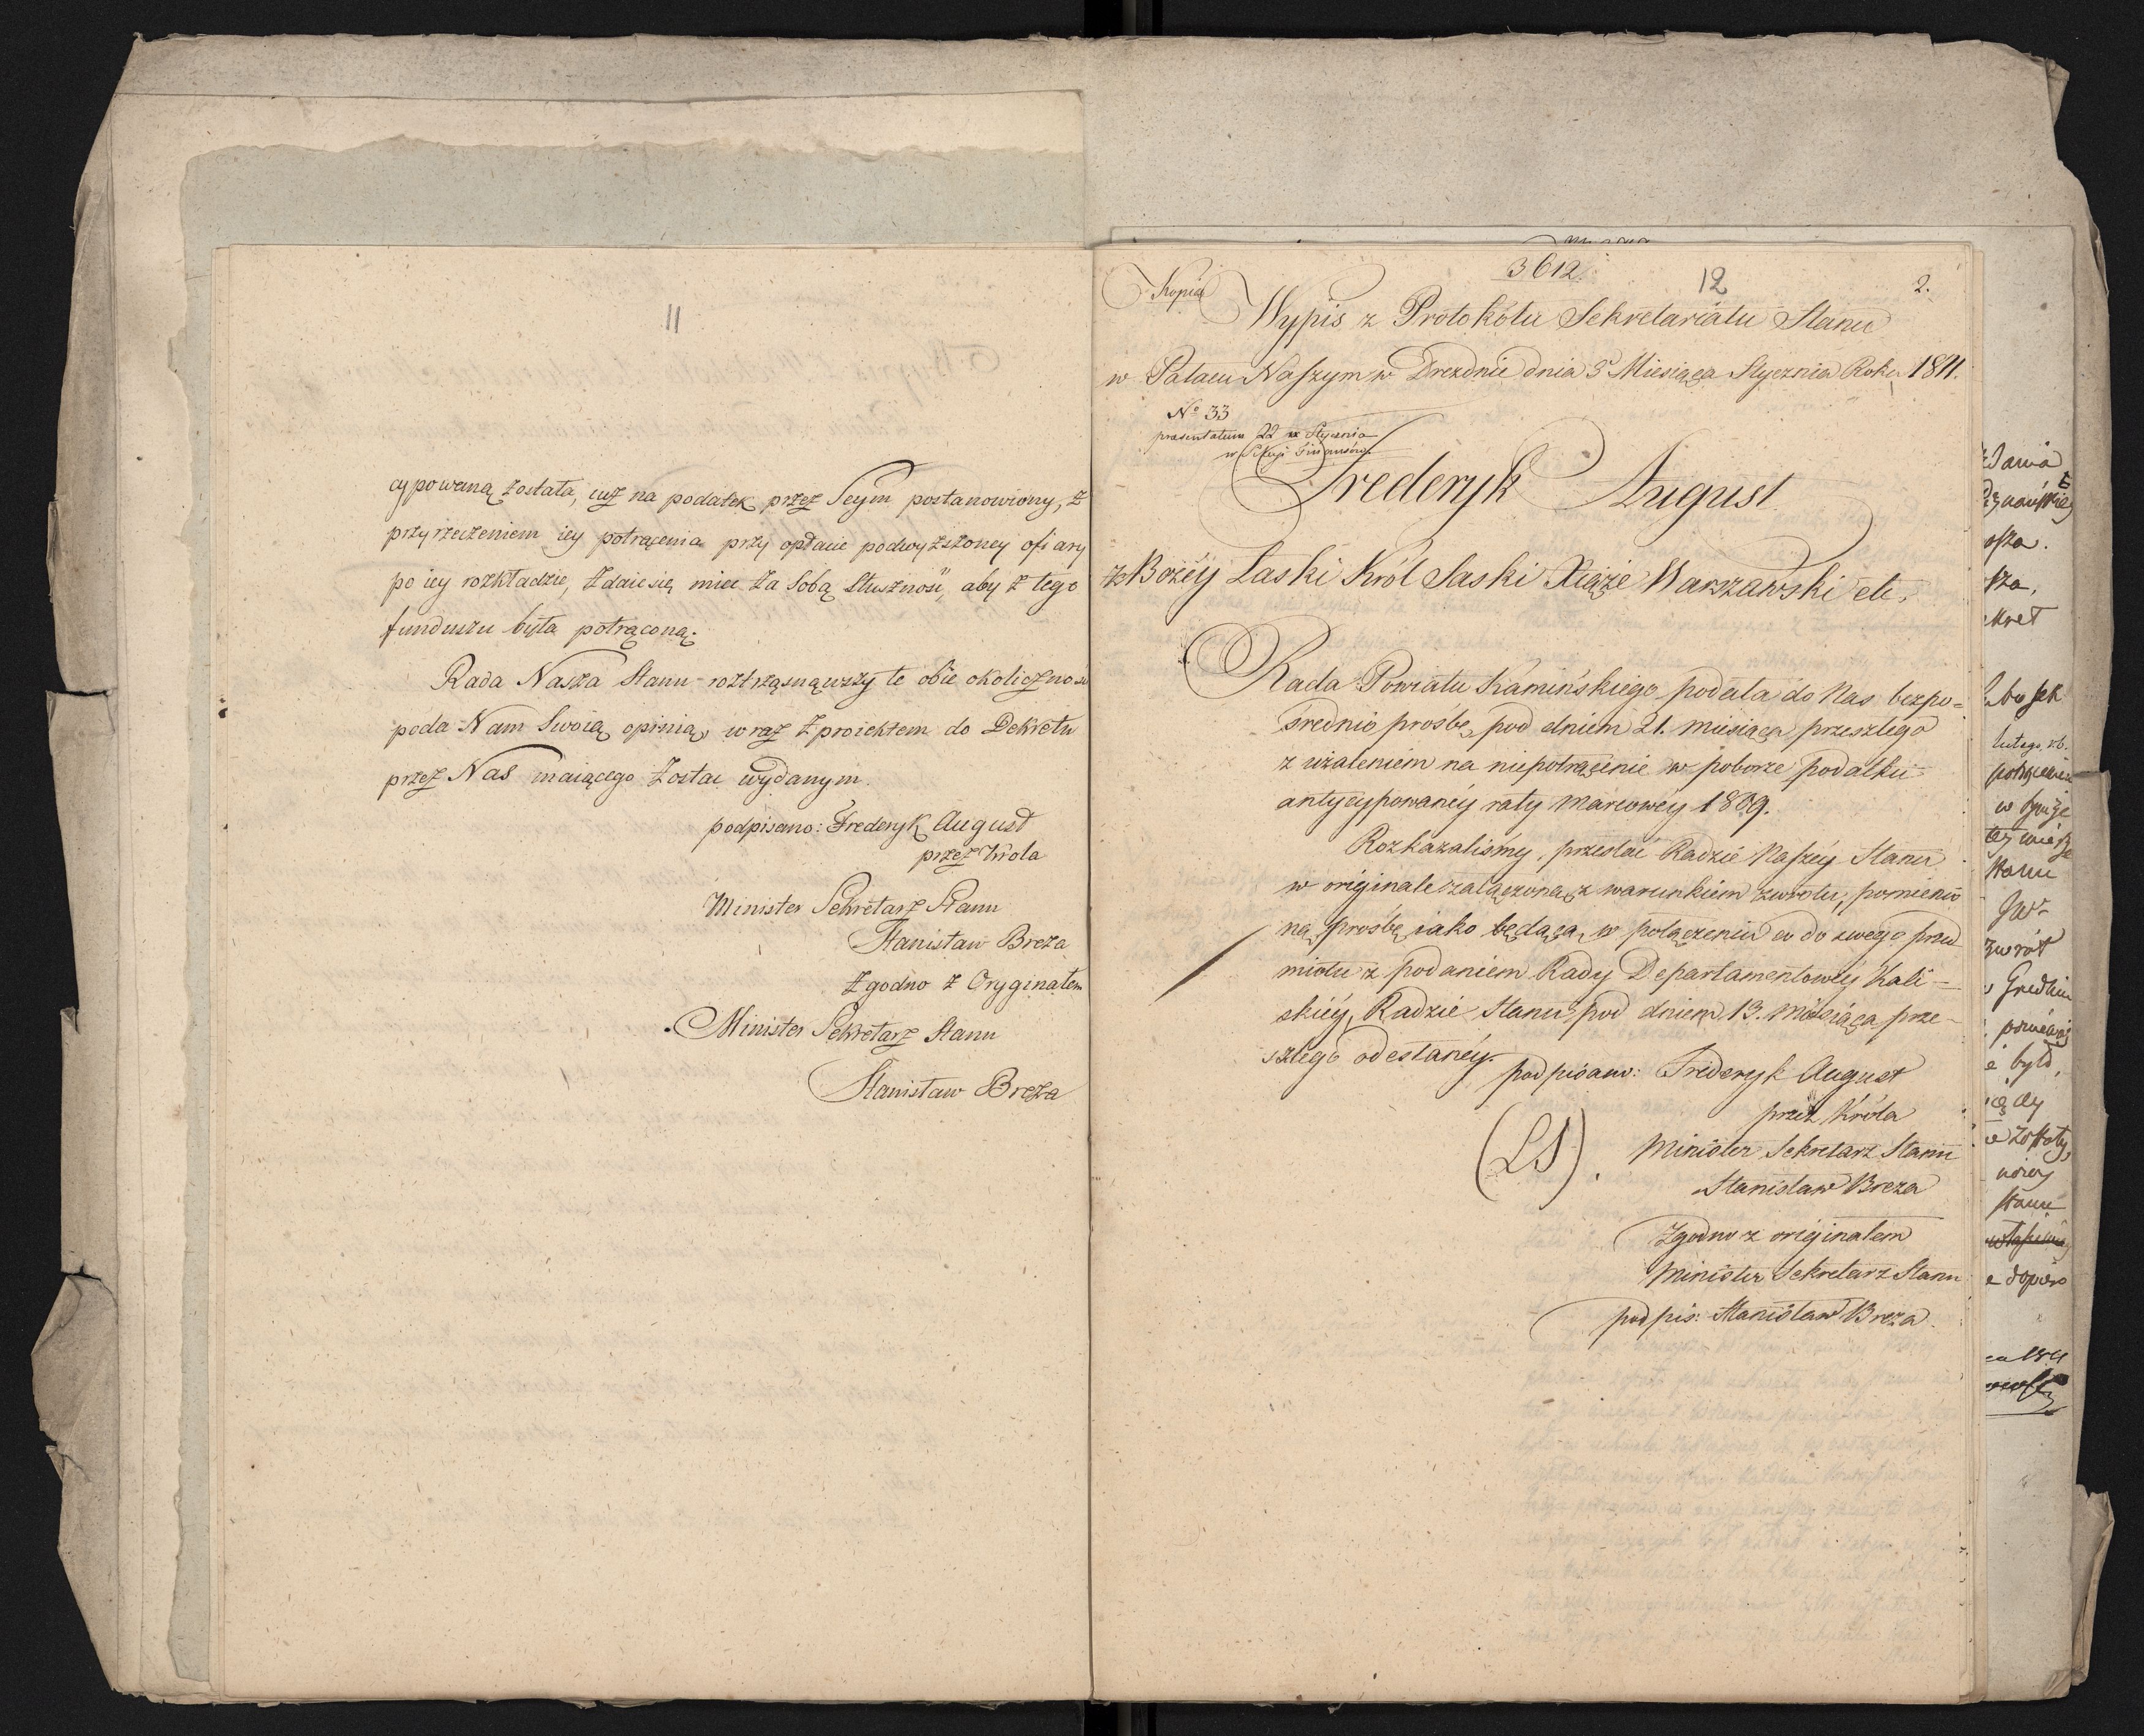 11
cypowaną została, już na podatek przez Seym postanowiony, z
przyrzeczeniem iey potrącenia przy opłacie podwyższoney ofiary
po iey rozkładzie, zdaie się mieć za Sobą Słuszność, aby z tego
funduszu była potrąconą.
Rada Nasza Stanu roztrząsnąwszy te obie okoliczności
poda Nam Swoią opinią, wraz z proiektem do Dekretu
przez Nas maiącego zostać wydanym.
podpisano: Frederyk August
przez Króla
Minister Sekretarz Stanu
Stanisław Breza
Zgodno z Oryginałem
Minister Sekretarz Stanu
Stanisław Breza
3612.
12
2.
Kopia
Wypis z Protokółu Sekretariatu Stanu
w Pałacu Naszym w Dreznie dnia 3 Miesiąca Stycznia Roku 1811.
No 33
praesentatum 22 Stycznia
w Sekcyi Finansów
Frederyk August
z Bożéy Łaski Król Saski Xiąże Warszawski etc.
Rada Powiatu Kamińskiego podała do Nas bezpo=
średnio prośbę, pod dniem 21. miesiąca przeszłego
z użaleniem na niepotrącenie w poborze podatku
antycypowanéy raty marcowéy 1809.
Rozkazaliśmy, przesłać Radzie Naszéy Stanu
w originale załączoną z warunkiem zwrotu, pomienio
ną prośbę, iako będącą, w połączeniu co do swego przed
miotu z podaniem Rady Departamentowéy Kali-
skiéy, Radzie Stanu, pod dniem 13. Miesiąca prze-
szłego odesłanéy.
podpisano: Frederyk August
przez Króla
(LS).
Minister Sekretarz Stanu
Stanisław Breza
Zgodno z originałem
Minister Sekretarz Stanu
podpis: Stanisław Breza.
zdania
kret
lutego, rb.
Stanu
JW-
zwrót
e było,
Stanu
e dopiero